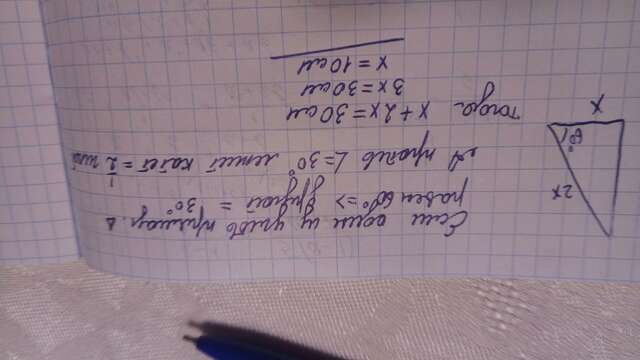 Если один из углов прямоуг. Δ
равен 60° => другой = 30°
А против ∠=30° лежит катет = 1/2 гип
тогда
x + 2x = 30 см
3x = 30 см
x = 10 см
2x
60°
x